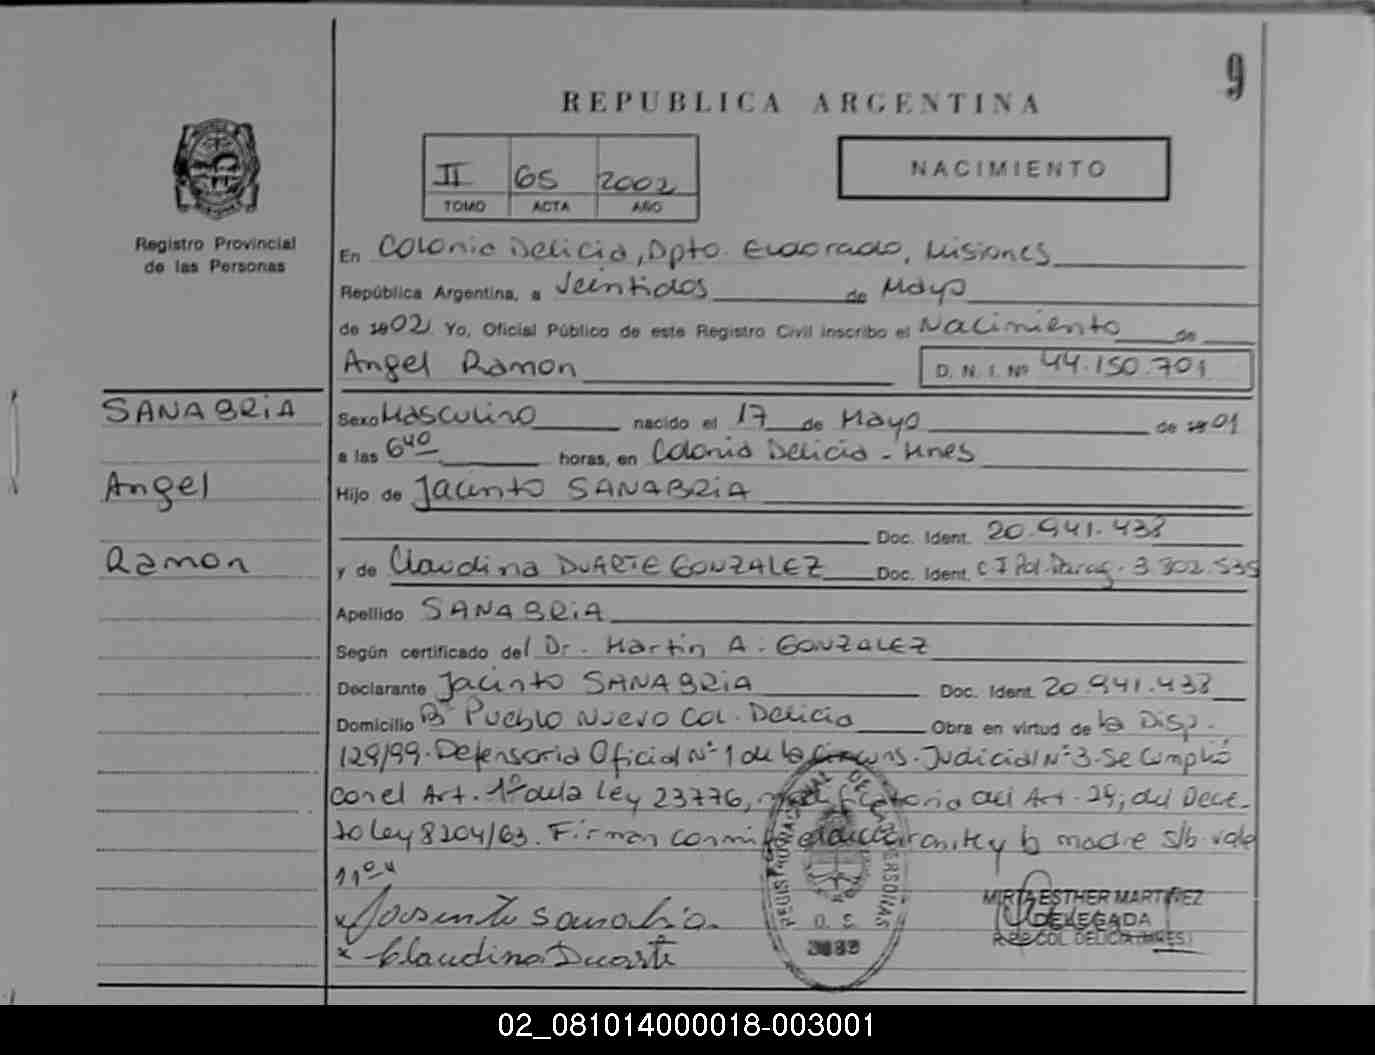 9
REPUBLICA ARGENTINA
II 65 2002
TOMO ACTA AÑO
NACIMIENTO
Registro Provincial
de las Personas
En Colonia Delicia, Dpto. Eldorado, Misiones
República Argentina, a Veintidos de Mayo
de 1902 Yo, Oficial Público de este Registro Civil inscribo el Nacimiento de
Angel Ramon D. N. I. Nº 44.150.701
SANABRIA
Angel
Ramon
Sexo Masculino nacido el 17 de Mayo de 1901
a las 6 40 horas, en Colonia Delicia - Mnes
Hijo de Jacinto SANABRIA
Doc. Ident. 20.941.438
y de Claudina DUARTE GONZALEZ Doc. Ident. C I Pol. Parag. 3 302.535
Apellido SANABRIA
Según certificado del Dr. Martin A. GONZALEZ
Declarante Jacinto SANABRIA Doc. Ident. 20.941.438
Domicilio Bº Pueblo Nuevo Col. Delicia Obra en virtud de la Disp.
129/99. Defensoria Oficial Nº 1 de la Circuns. Judicial Nº 3. Se Cumplió
con el Art. 1º de la Ley 23776, modificatoria del Art. 29, del Decre-
to Ley 8204/63. Firman conmigo el declarante y la madre s/b vale
REGISTRO PERSONAS
MIRTA ESTHER MARTINEZ
DELEGADA
COL. DELICIA (MNES)
x Jasente sanabria.
x Claudina Duarte
02_081014000018-003001